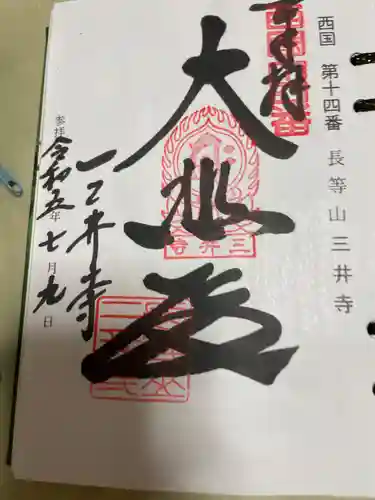 西国 第十四番 長等山 三井寺
奉拝
大悲殿
三井寺
参拝
令和五年七月九日